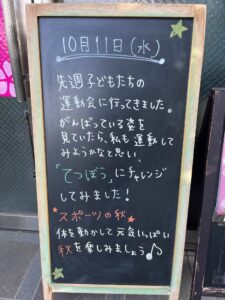 10月11日(水)
先週子どもたちの
運動会に行ってきました。
がんばっている姿を
見ていたら、私も運動して
みようかなと思い、
「てつぼう」にチャレンジ
してみました!
*スポーツの秋*
体を動かして元気いっぱい
秋を楽しみましょう♪